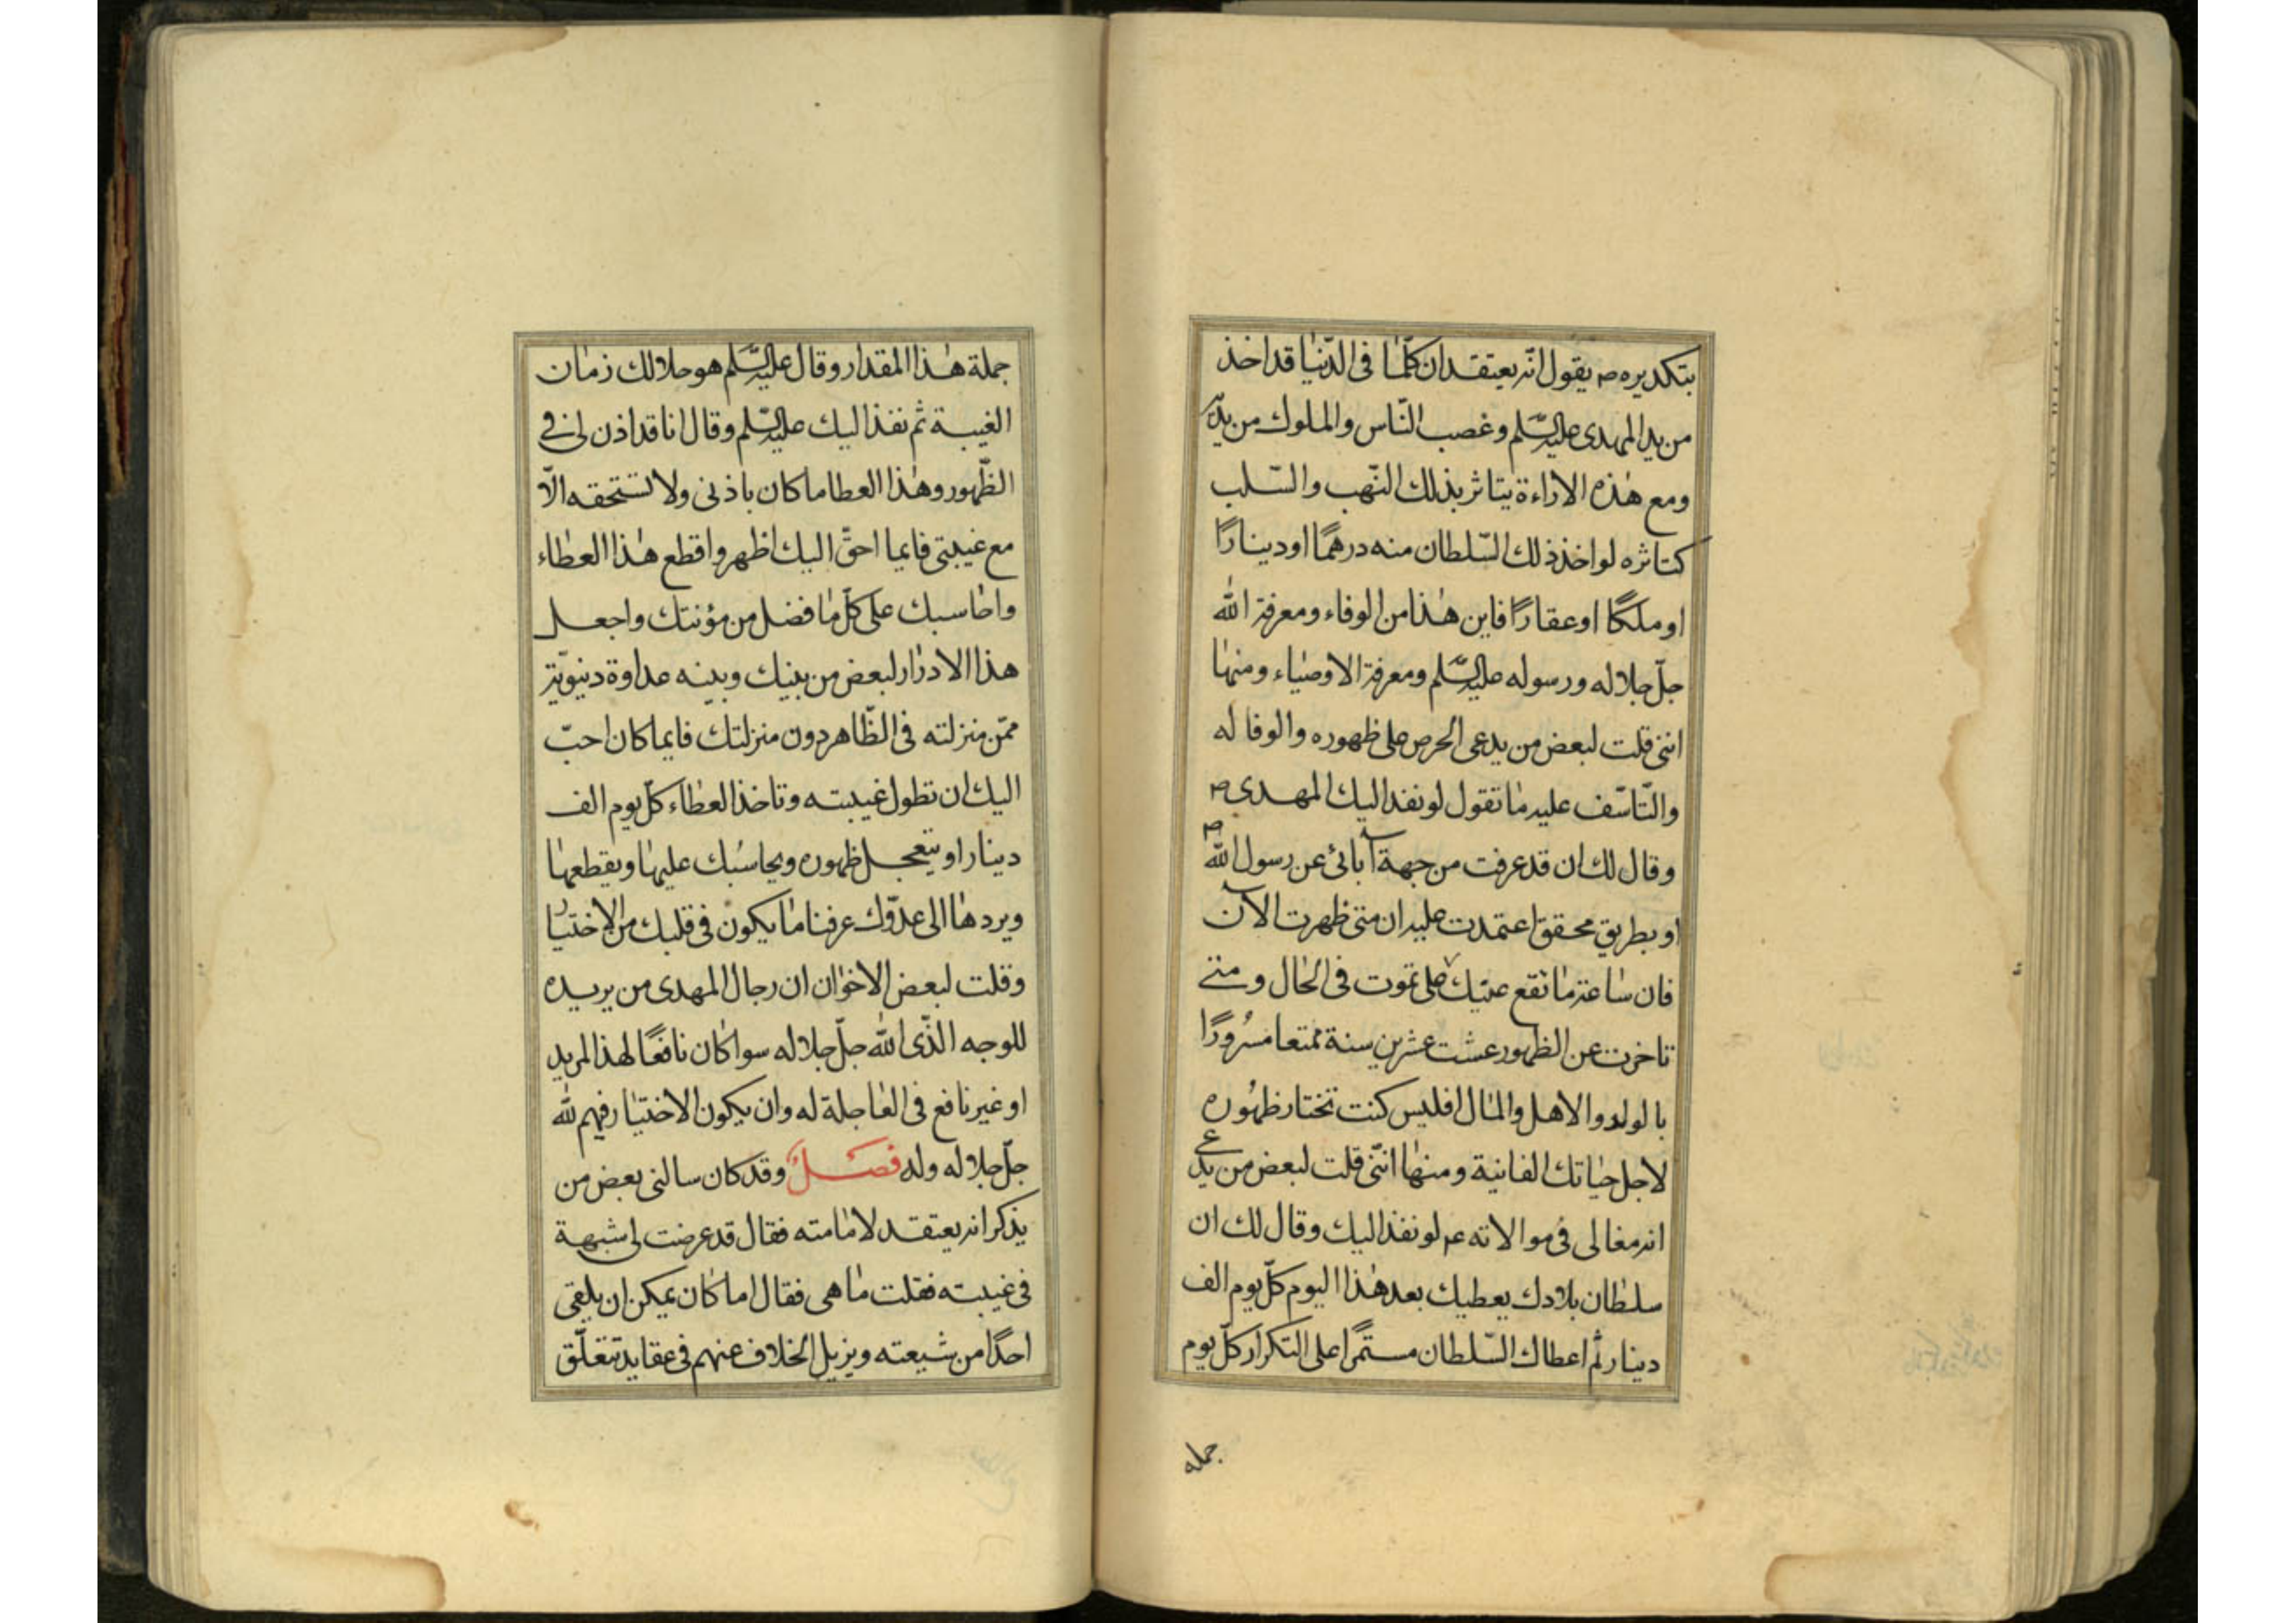 بتكديره ص يقول انّه يعتقد ان كلّما فى الدّنيا قد اخذ
من يد المهدى عليه السّلم و غصب النّاس والملوك من يده
ومع هذه الاراءة يتاثر بذلك النّهب والسّلب
كتاثره لو اخذ ذلك السّلطان منه درهمًا او دينارًا
او ملكًا او عقارًا فاين هذا من الوفاء ومعرفة الله
جلّ جلاله ورسوله عليه السّلم ومعرفة الاوصياء ومنها
اننى قلت لبعض من يدعى الحرص على ظهوره والوفا له
والتّاسّف عليه ما تقول لو نفذ اليك المهدى ص
وقال لك ان قد عرفت من جهة آبائى عن رسول الله ص
او بطريق محقق اعتمدت عليه ان متى ظهرت الآن
فان ساعة ما تقع عينيك علىّ تموت فى الحال ومتى
تاخرت عن الظهور عشت عشرين سنة ممتعا مسرُورًا
بالولد والاهل والمال افليس كنت تختار ظهُوره
لاجل حياتك الفانية ومنها انّنى قلت لبعض من يدعى
انه مغالى فى موالاته عم لو نفذ اليك وقال لك ان
سلطان بلادك يعطيك بعد هذا اليوم كلّ يوم الف
دينار ثم اعطاك السّلطان مستمرًا على التكرار كلّ يوم
جمله
جملة هذا المقدار وقال عليه السّلم هو حلالك زمان
الغيبة ثم نفذ اليك عليه السّلم وقال انا قد اذن لى فى
الظّهور وهذا العطا ما كان باذنى ولا تستحقه الّا
مع غيبتى فايما احقّ اليك اظهر واقطع هذا العطاء
واحاسبك على كلّ ما فضل من مؤنتك واجعل
هذا الادرار لبعض من بينك وبينه عداوة دنيويّة
ممّن منزلته فى الظّاهر دون منزلتك فايما كان احبّ
اليك ان تطول غيبته وتاخذ العطاء كلّ يوم الف
دينار او يتعجل ظهوره ويحاسُبك عليها ويقطعها
ويردها الى عدوّك عرفنا ما يكون فى قلبك من الاختيار
وقلت لبعض الاخوان ان رجال المهدى من يريده
للوجه الذّى الله جلّ جلاله سوا كان نافعًا لهذا المريد
او غير نافع فى العاجلة له وان يكون الاختيار فيهم لله
جلّ جلاله وله فصل وقد كان سالنى بعض من
يذكر انه يعتقد لامامته فقال قد عرضت لى شبهة
فى غيبته فقلت ما هى فقال اما كان يمكن ان يلقى
احدًا من شيعته ويزيل الخلاف عنهم فى عقايد تتعلّق